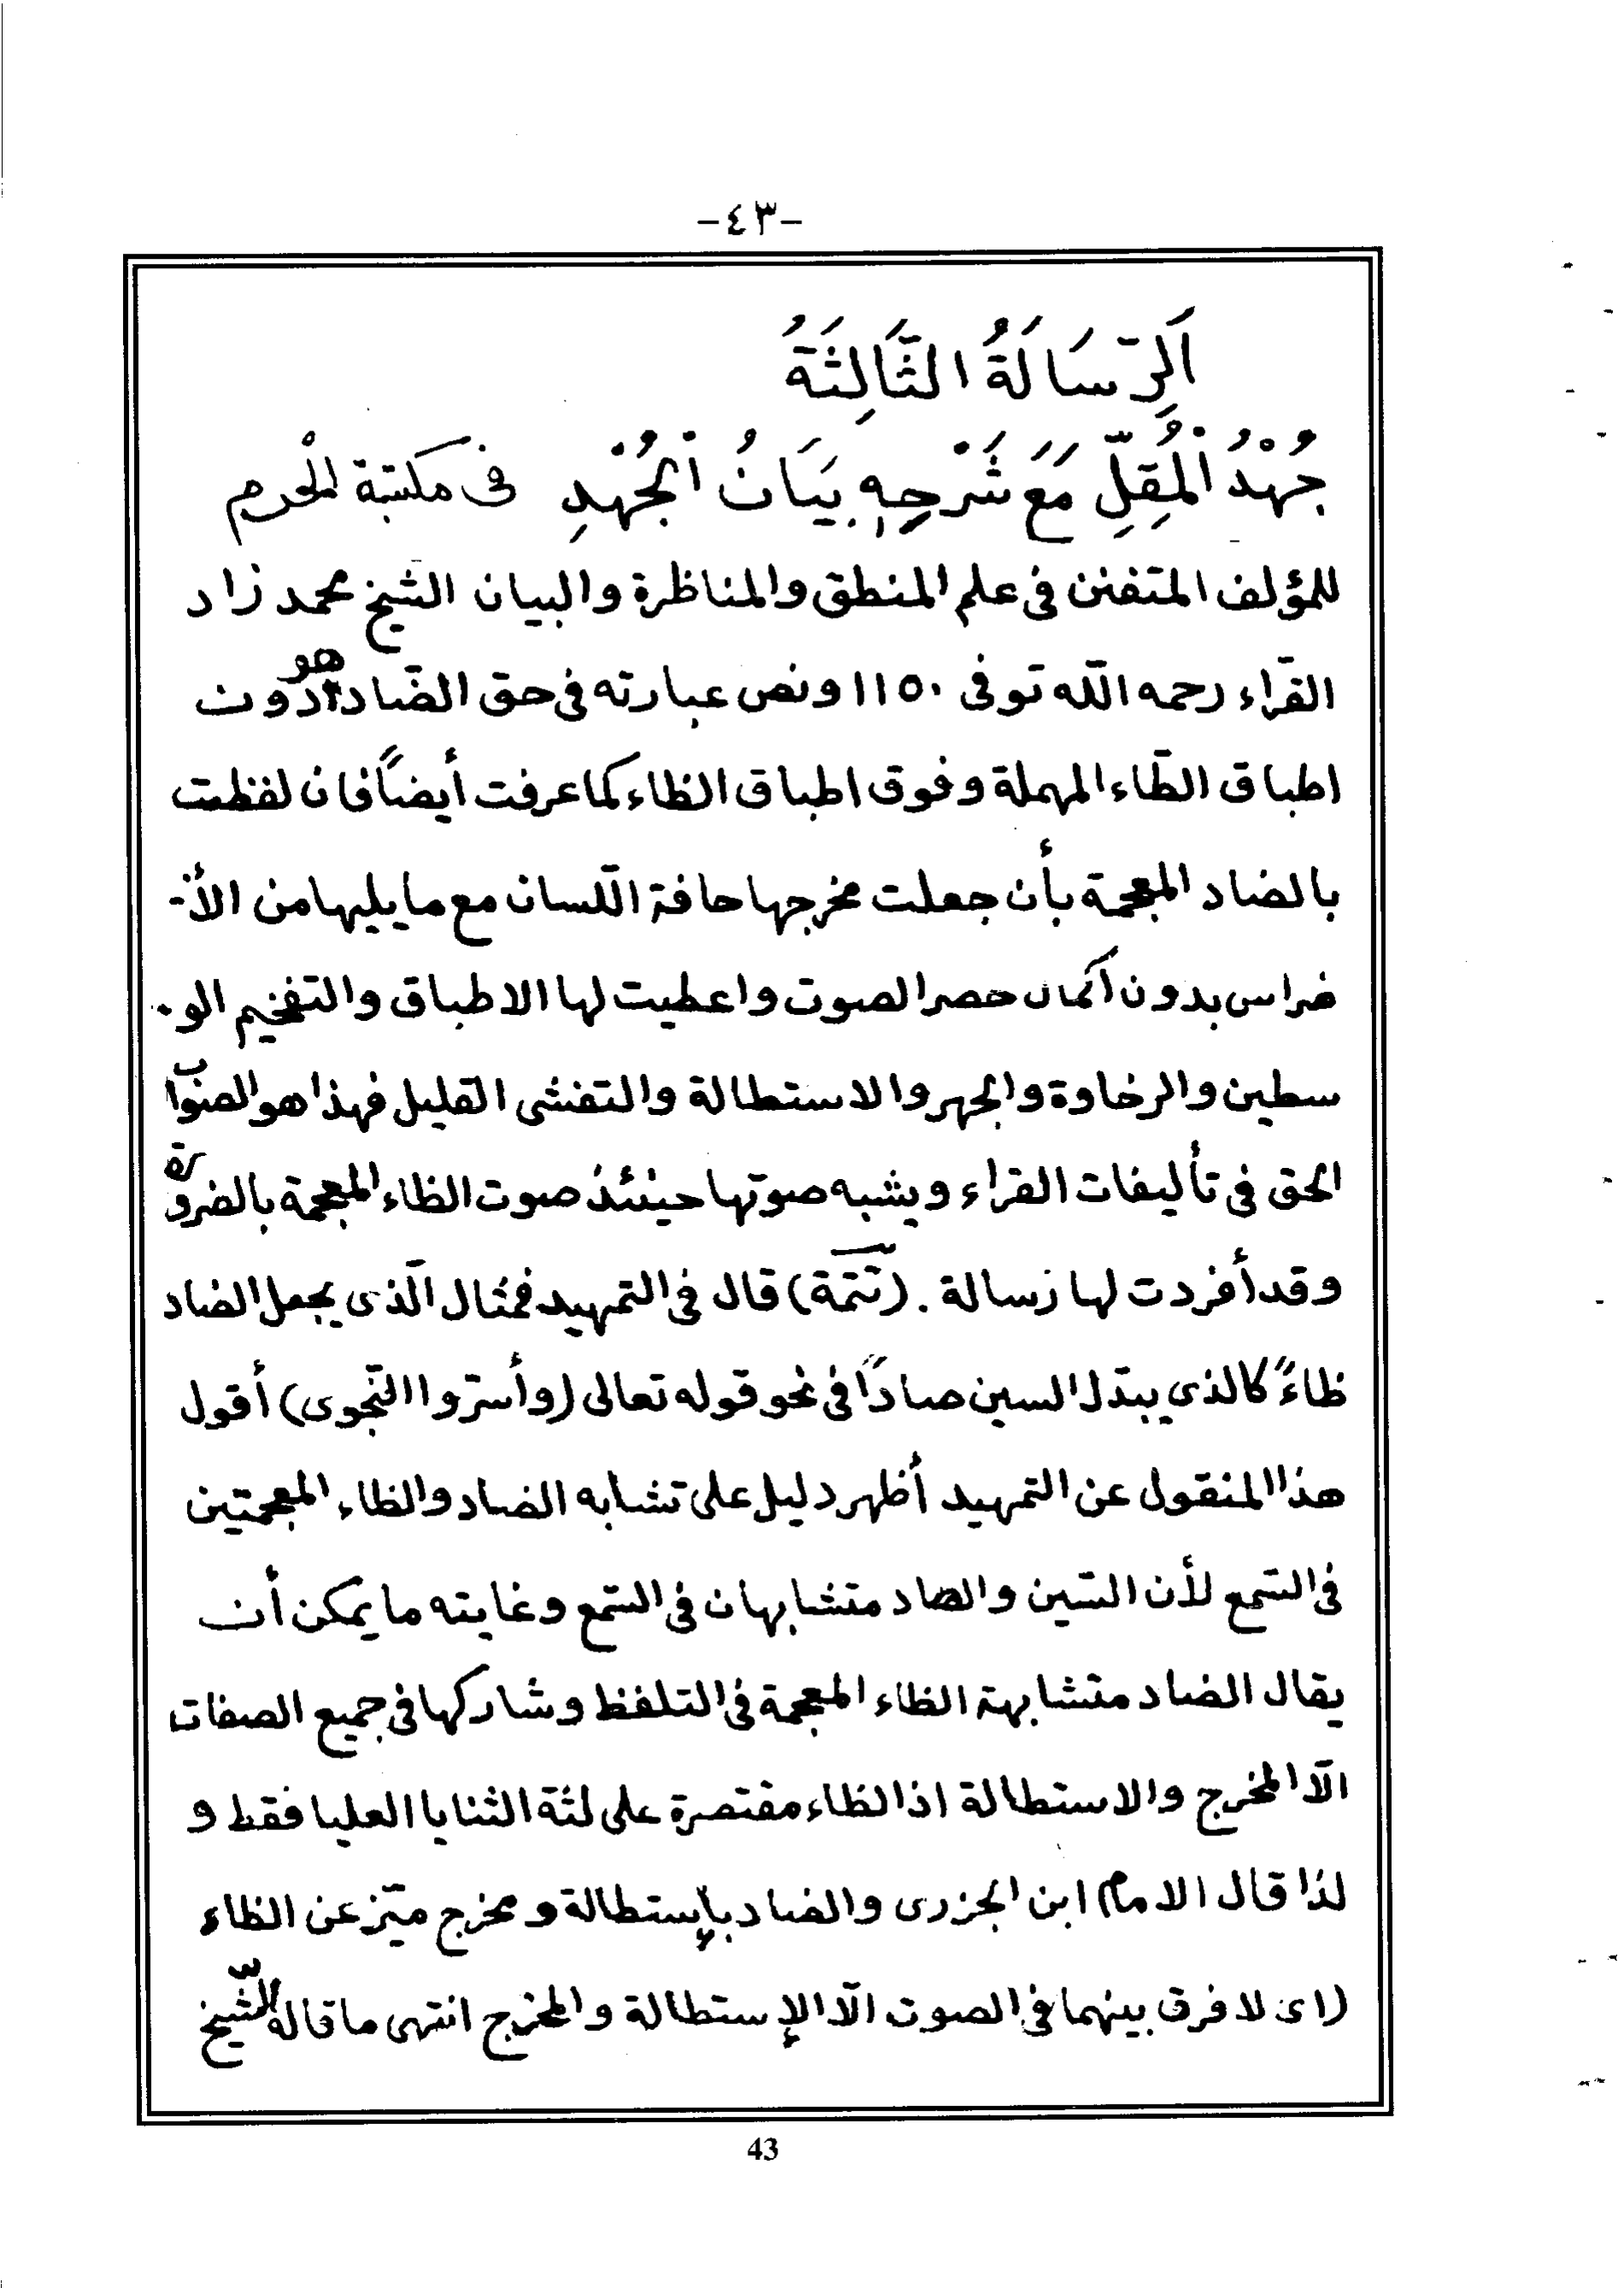 -٤٣-
اَلرِّسَالَةُ الثَّالِثَةُ
جُهْدُ الْمُقِلِّ مَعَ شَرْحِهِ بَيَانُ الْجُهْدِ فی مكتبة الْحرم
للمؤلف المتفنن فی علم المنطق والمناظرة والبيان الشيخ محمد زاد
القرّاء رحمه اللّه توفی ١١٥٠ ونص عبارته فی حق الضّاد هو دون
اطباق الطّاء المهملة وفوق اطباق الظاء كما عرفت أيضاً فان لفظت
بالضاد المعجمة بأن جعلت مخرجها حافة اللّسان مع ما يليها من الأ-
ضراس بدون أكمال حصر الصوت واعطيت لها الاطباق والتفخيم الو-
سطين والرخاوة والجهر والاستطالة والتفشی القليل فهذا هو الصواب
الحق فی تأليفات القراء ويشبه صوتها حينئذ صوت الظاء المعجمة بالضرورة
وقد أفردت لها رسالة . (تتمّة) قال فی التمهيد فمثال الّذی يجعل الضاد
ظاءً كالذی يبدّل السين صاداً فی نحو قوله تعالی (وأسرّوا النّجوی) أقول
هذا المنقول عن التمهيد أظهر دليل علی تشابه الضاد والظاء المعجمتين
فی السّمع لأن السّين والصاد متشابهان فی السّمع وغايته ما يمكن أن
يقال الضاد متشابهة الظاء المعجمة فی التلفظ وشاركها فی جميع الصفات
الّا المخرج والاستطالة اذا لظاء مقتصرة علی لثة الثنايا العليا فقط و
لذا قال الامام ابن الجزری والضاد بإستطالة و مخرج ميّز عن الظاء
(ای لا فرق بينهما فی الصوت الّا الإستطالة والمخرج انتهی ما قاله الشّيخ
43